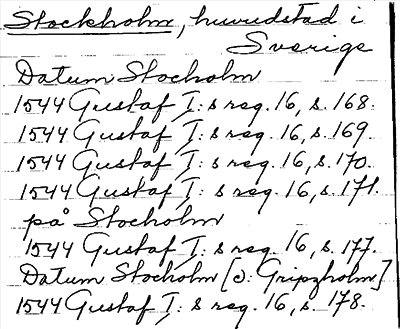 Stockholm, huvudstad i
Sverige
Datum Stocholm
1544 Gustaf I: s reg. 16, s. 168.
1544 Gustaf I: s reg. 16, s. 169.
1544 Gustaf I: s reg. 16, s. 170.
1544 Gustaf I: s reg. 16, s. 171.
på Stocholm
1544 Gustaf I: s reg. 16, s. 177.
Datum Stocholm [ɔ: Gripzholm]
1544 Gustaf I: s reg. 16, s. 178.